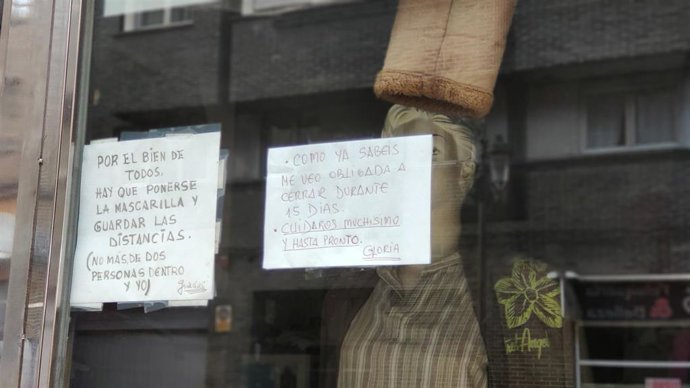 POR EL BIEN DE
TODOS.
HAY QUE PONERSE
LA MASCARILLA Y
GUARDAR LAS
DISTANCIAS.
(NO MAS, DE DOS
PERSONAS DENTRO
Y YO)
gracias
• COMO YA SABEIS
ME VEO OBLIGADA A
CERRAR DURANTE
15 DIAS.
• CUIDAROS MUCHISIMO
Y HASTA PRONTO.
GLORIA
Angel
& Belleza